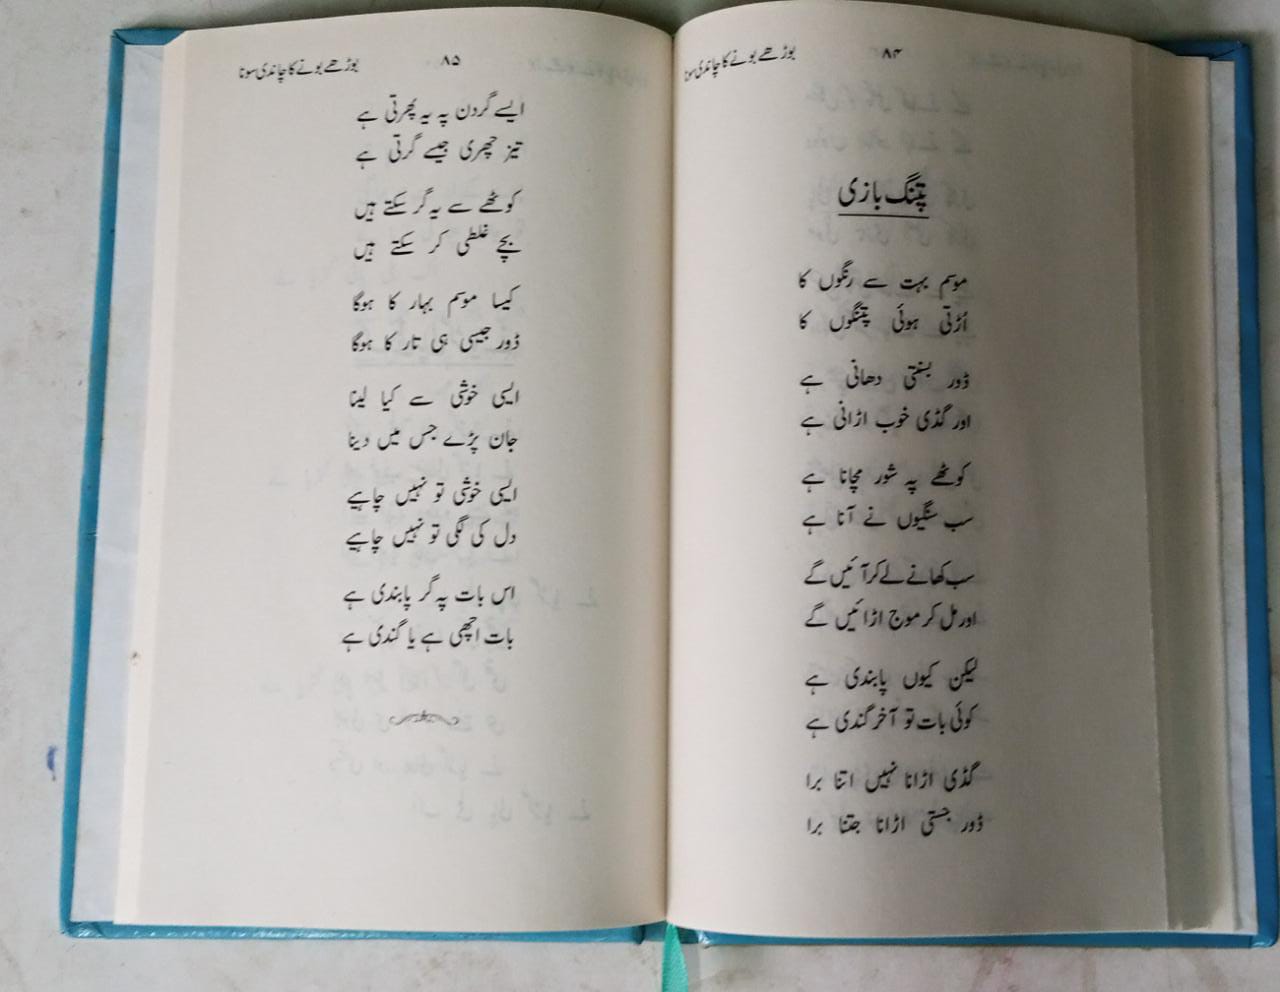 ۸۴ بوڑھے بونے کا چاندی سونا
پتنگ بازی
موسم بہت سے رنگوں کا
اُڑتی ہوئی پتنگوں کا
ڈور بسنتی دھانی ہے
اور گڈی خوب اڑانی ہے
کوٹھے پہ شور مچانا ہے
سب سنگیوں نے آنا ہے
سب کھانے لے کر آئیں گے
اور مل کر موج اڑائیں گے
لیکن کیوں پابندی ہے
کوئی بات تو آخر گندی ہے
گڈی اڑانا نہیں اتنا برا
ڈور جستی اڑانا جتنا برا
۸۵ بوڑھے بونے کا چاندی سونا
ایسے گردن پہ یہ پھرتی ہے
تیز چھری جیسے گرتی ہے
کوٹھے سے یہ گر سکتے ہیں
بچے غلطی کر سکتے ہیں
کیسا موسم بہار کا ہوگا
ڈور جیسی ہی تار کا ہوگا
ایسی خوشی سے کیا لینا
جان پڑے جس میں دینا
ایسی خوشی تو نہیں چاہیے
دل کی لگی تو نہیں چاہیے
اس بات پہ گر پابندی ہے
بات اچھی ہے یا گندی ہے